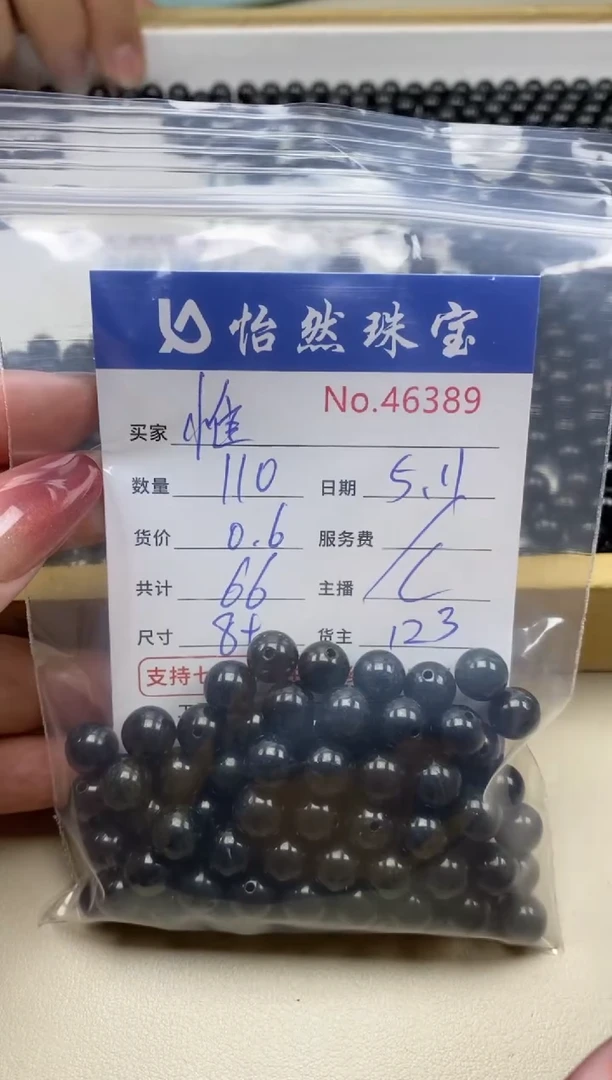 怡然珠宝
No.46389
买家 惟
数量 110 日期 5.11
货价 0.6 服务费
共计 66 主播
尺寸 8+ 货主 123
支持七